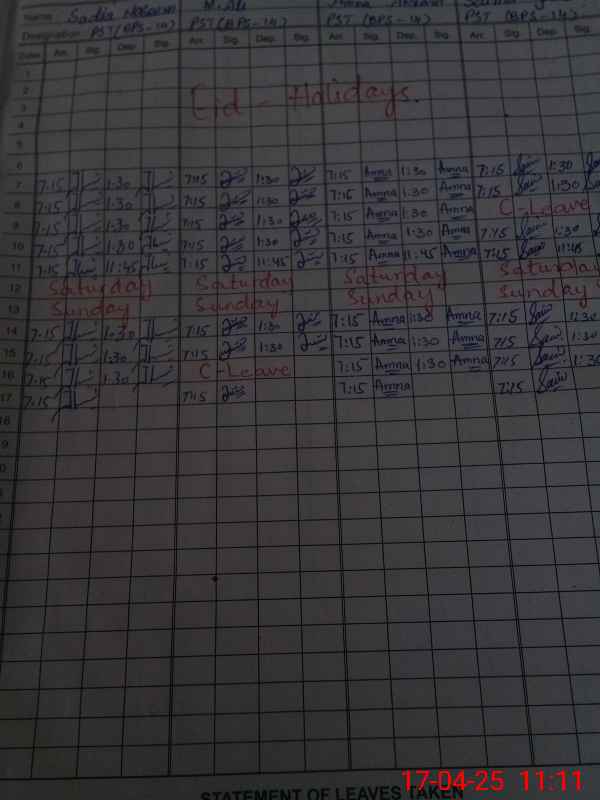 Name Sadia M. Ali Amna
Designation PST(BPS-14) PST(BPS-14) PST (BPS-14) PST (BPS-14)
Date Arr. Sig. Dep. Sig. Arr. Sig. Dep. Sig. Arr. Sig. Dep. Sig. Arr. Sig. Dep. Sig.
1
2
3
Eid - Holidays.
4
5
6
7 7:15 1:30 7:15 1:30 7:15 Amna 1:30 Amna 7:15 1:30
8 7:15 1:30 7:15 1:30 7:15 Amna 1:30 Amna 7:15 1:30
9 7:15 1:30 7:15 1:30 7:15 Amna 1:30 Amna C-Leave
10 7:15 1:30 7:15 1:30 7:15 Amna 1:30 Amna 7:15 1:30
11 7:15 11:45 7:15 11:45 7:15 Amna 11:45 Amna 7:15 11:45
12 Saturday Saturday Saturday Saturday
13 Sunday Sunday Sunday Sunday
14 7:15 1:30 7:15 1:30 7:15 Amna 1:30 Amna 7:15 1:30
15 7:15 1:30 7:15 1:30 7:15 Amna 1:30 Amna 7:15 1:30
16 7:15 1:30 C-Leave 7:15 Amna 1:30 Amna 7:15 1:30
17 7:15 7:15 7:15 Amna 7:15
18
STATEMENT OF LEAVES TAKEN
17-04-25 11:11